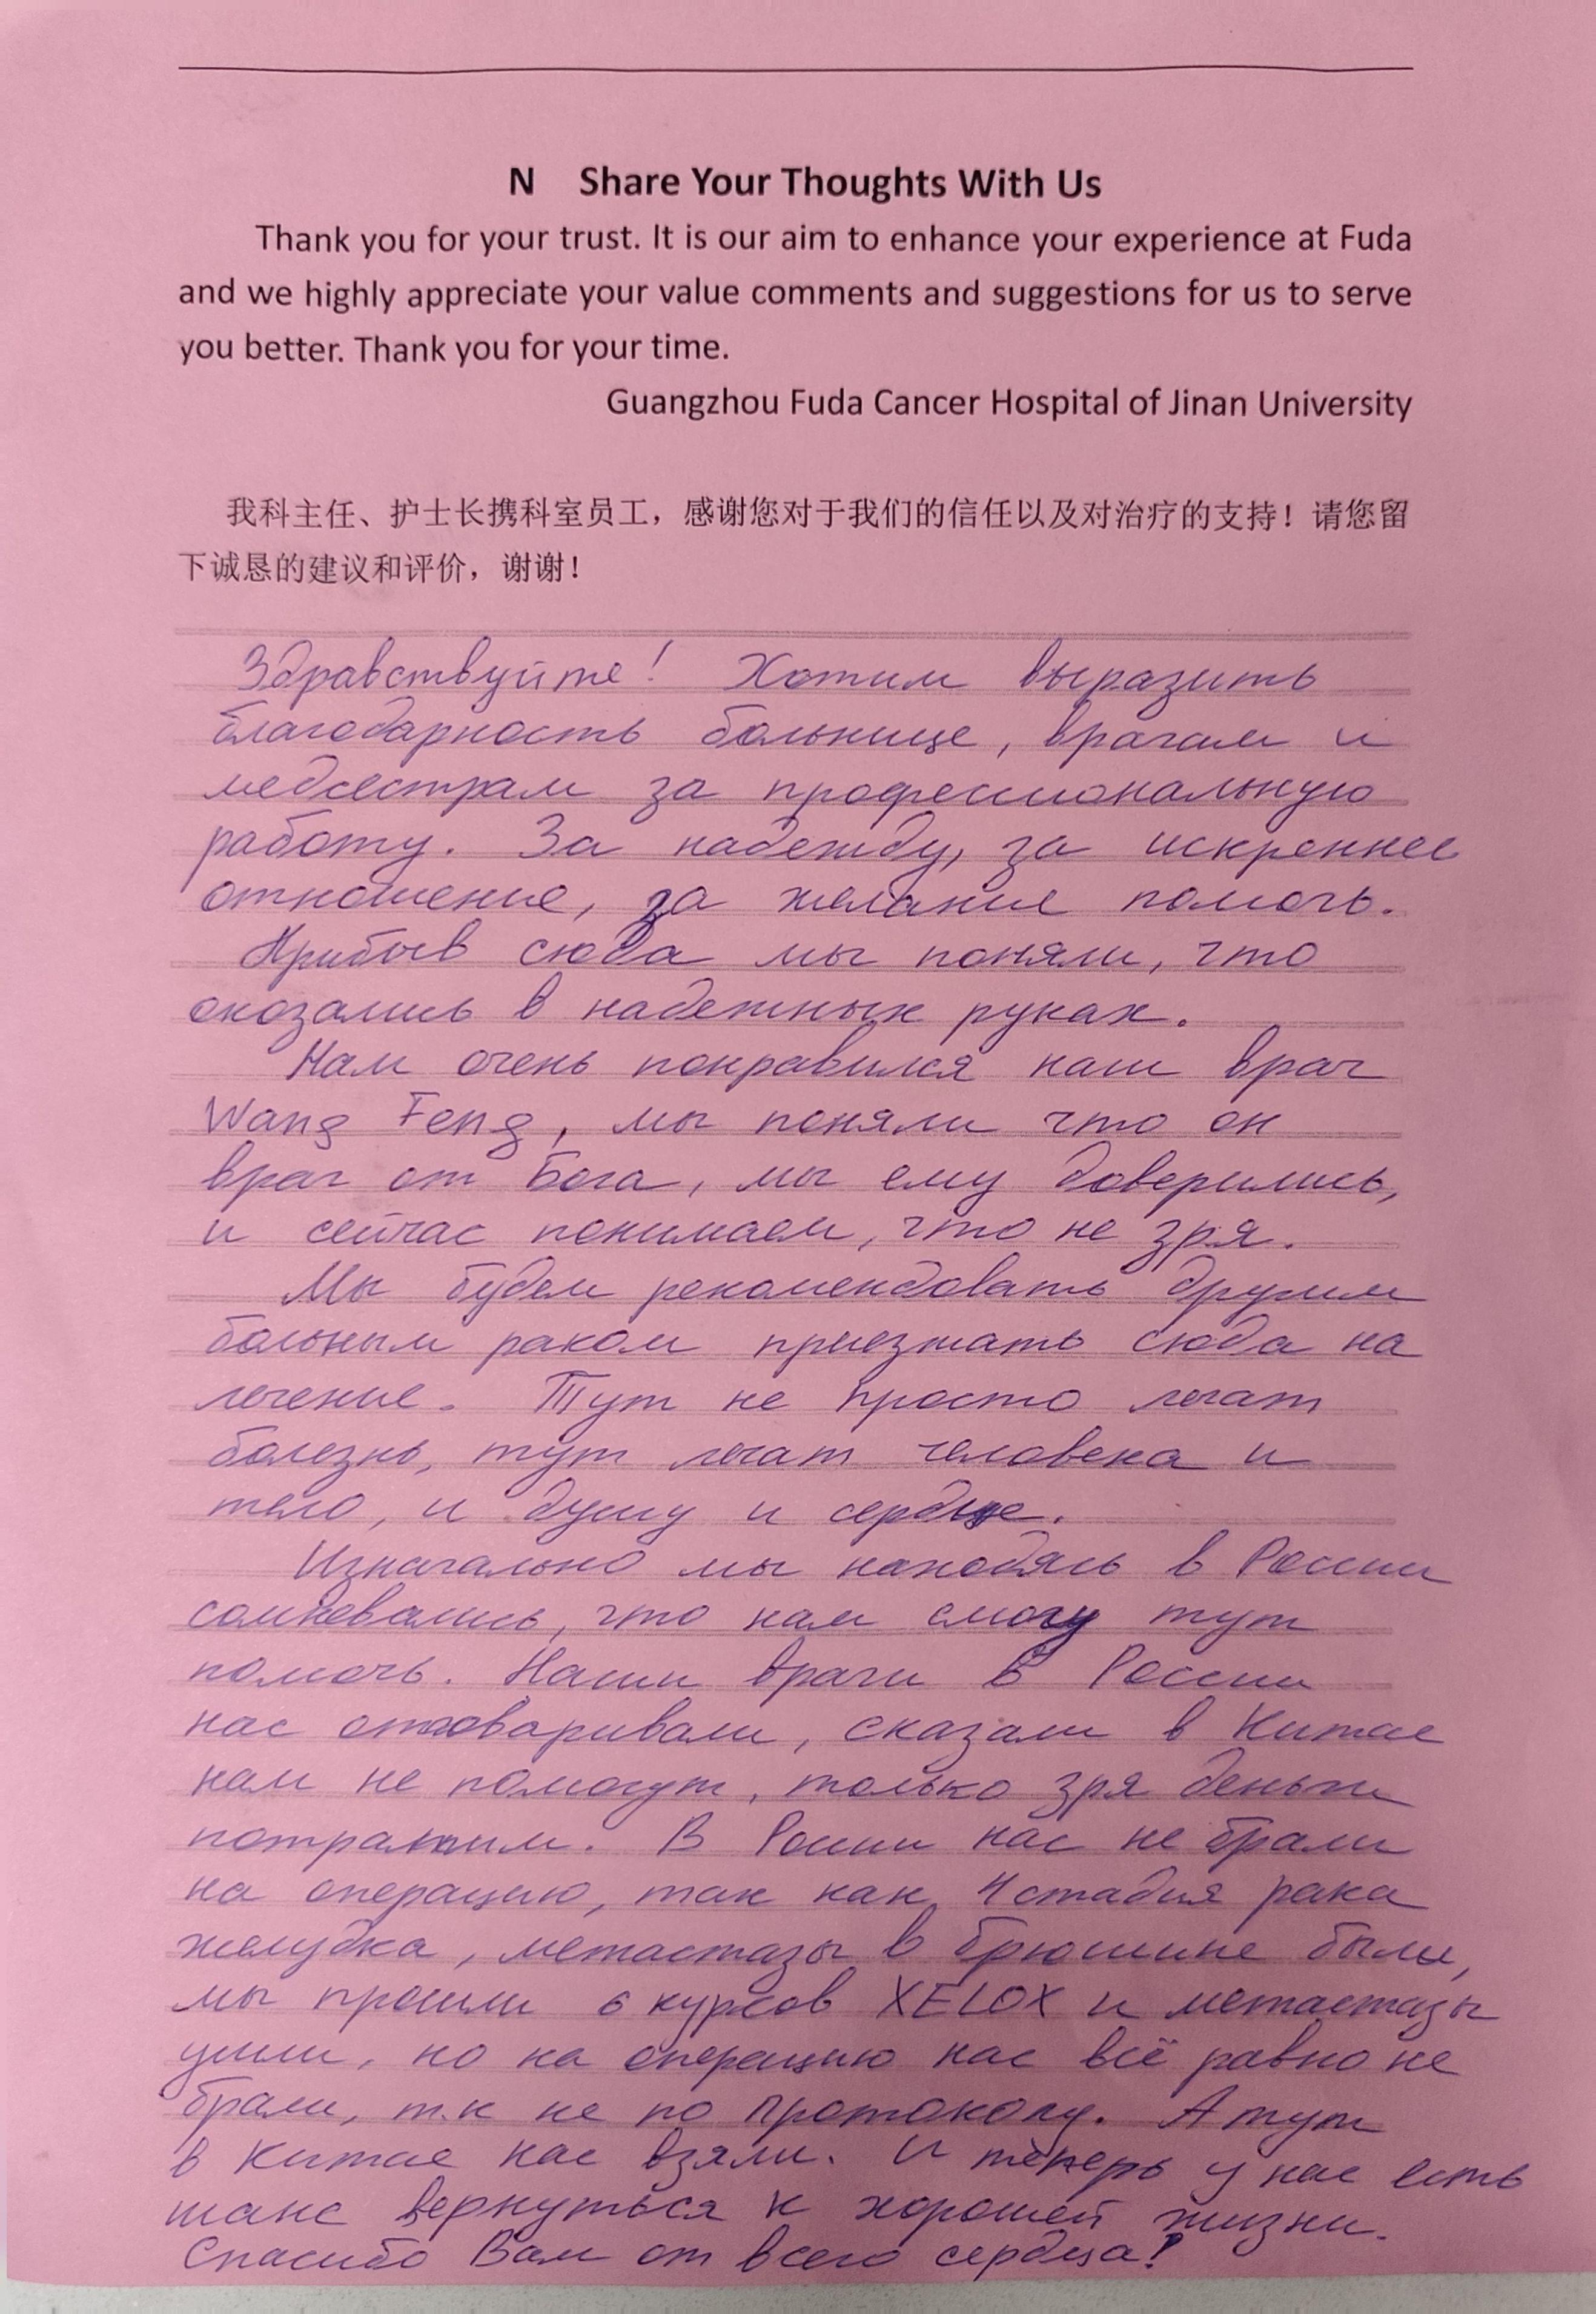 N Share Your Thoughts With Us
Thank you for your trust. It is our aim to enhance your experience at Fuda
and we highly appreciate your value comments and suggestions for us to serve
you better. Thank you for your time.
Guangzhou Fuda Cancer Hospital of Jinan University
我科主任、护士长携科室员工，感谢您对于我们的信任以及对治疗的支持！请您留
下诚恳的建议和评价，谢谢！
Здравствуйте! Хотим выразить
благодарность больнице, врачам и
медсестрам за профессиональную
работу. За надежду, за искреннее
отношение, за желание помочь.
Прибыв сюда мы поняли, что
оказались в надежных руках.
Нам очень понравился наш врач
Wang Feng, мы поняли что он
врач от Бога, мы ему доверились,
и сейчас понимаем, что не зря.
Мы будем рекомендовать другим
больным раком приезжать сюда на
лечение. Тут не просто лечат
болезнь, тут лечат человека и
тело, и душу и сердце.
Изначально мы находясь в России
сомневались, что нам смогу тут
помочь. Наши врачи в России
нас отговаривали, сказали в Китае
нам не помогут, только зря деньги
потратим. В России нас не брали
на операцию, так как 4 стадия рака
желудка, метастазы в брюшине были,
мы прошли 6 курсов XELOX и метастазы
ушли, но на операцию нас всё равно не
брали, т.к не по протоколу. А тут
в Китае нас взяли. И теперь у нас есть
шанс вернуться к хорошей жизни.
Спасибо Вам от всего сердца!